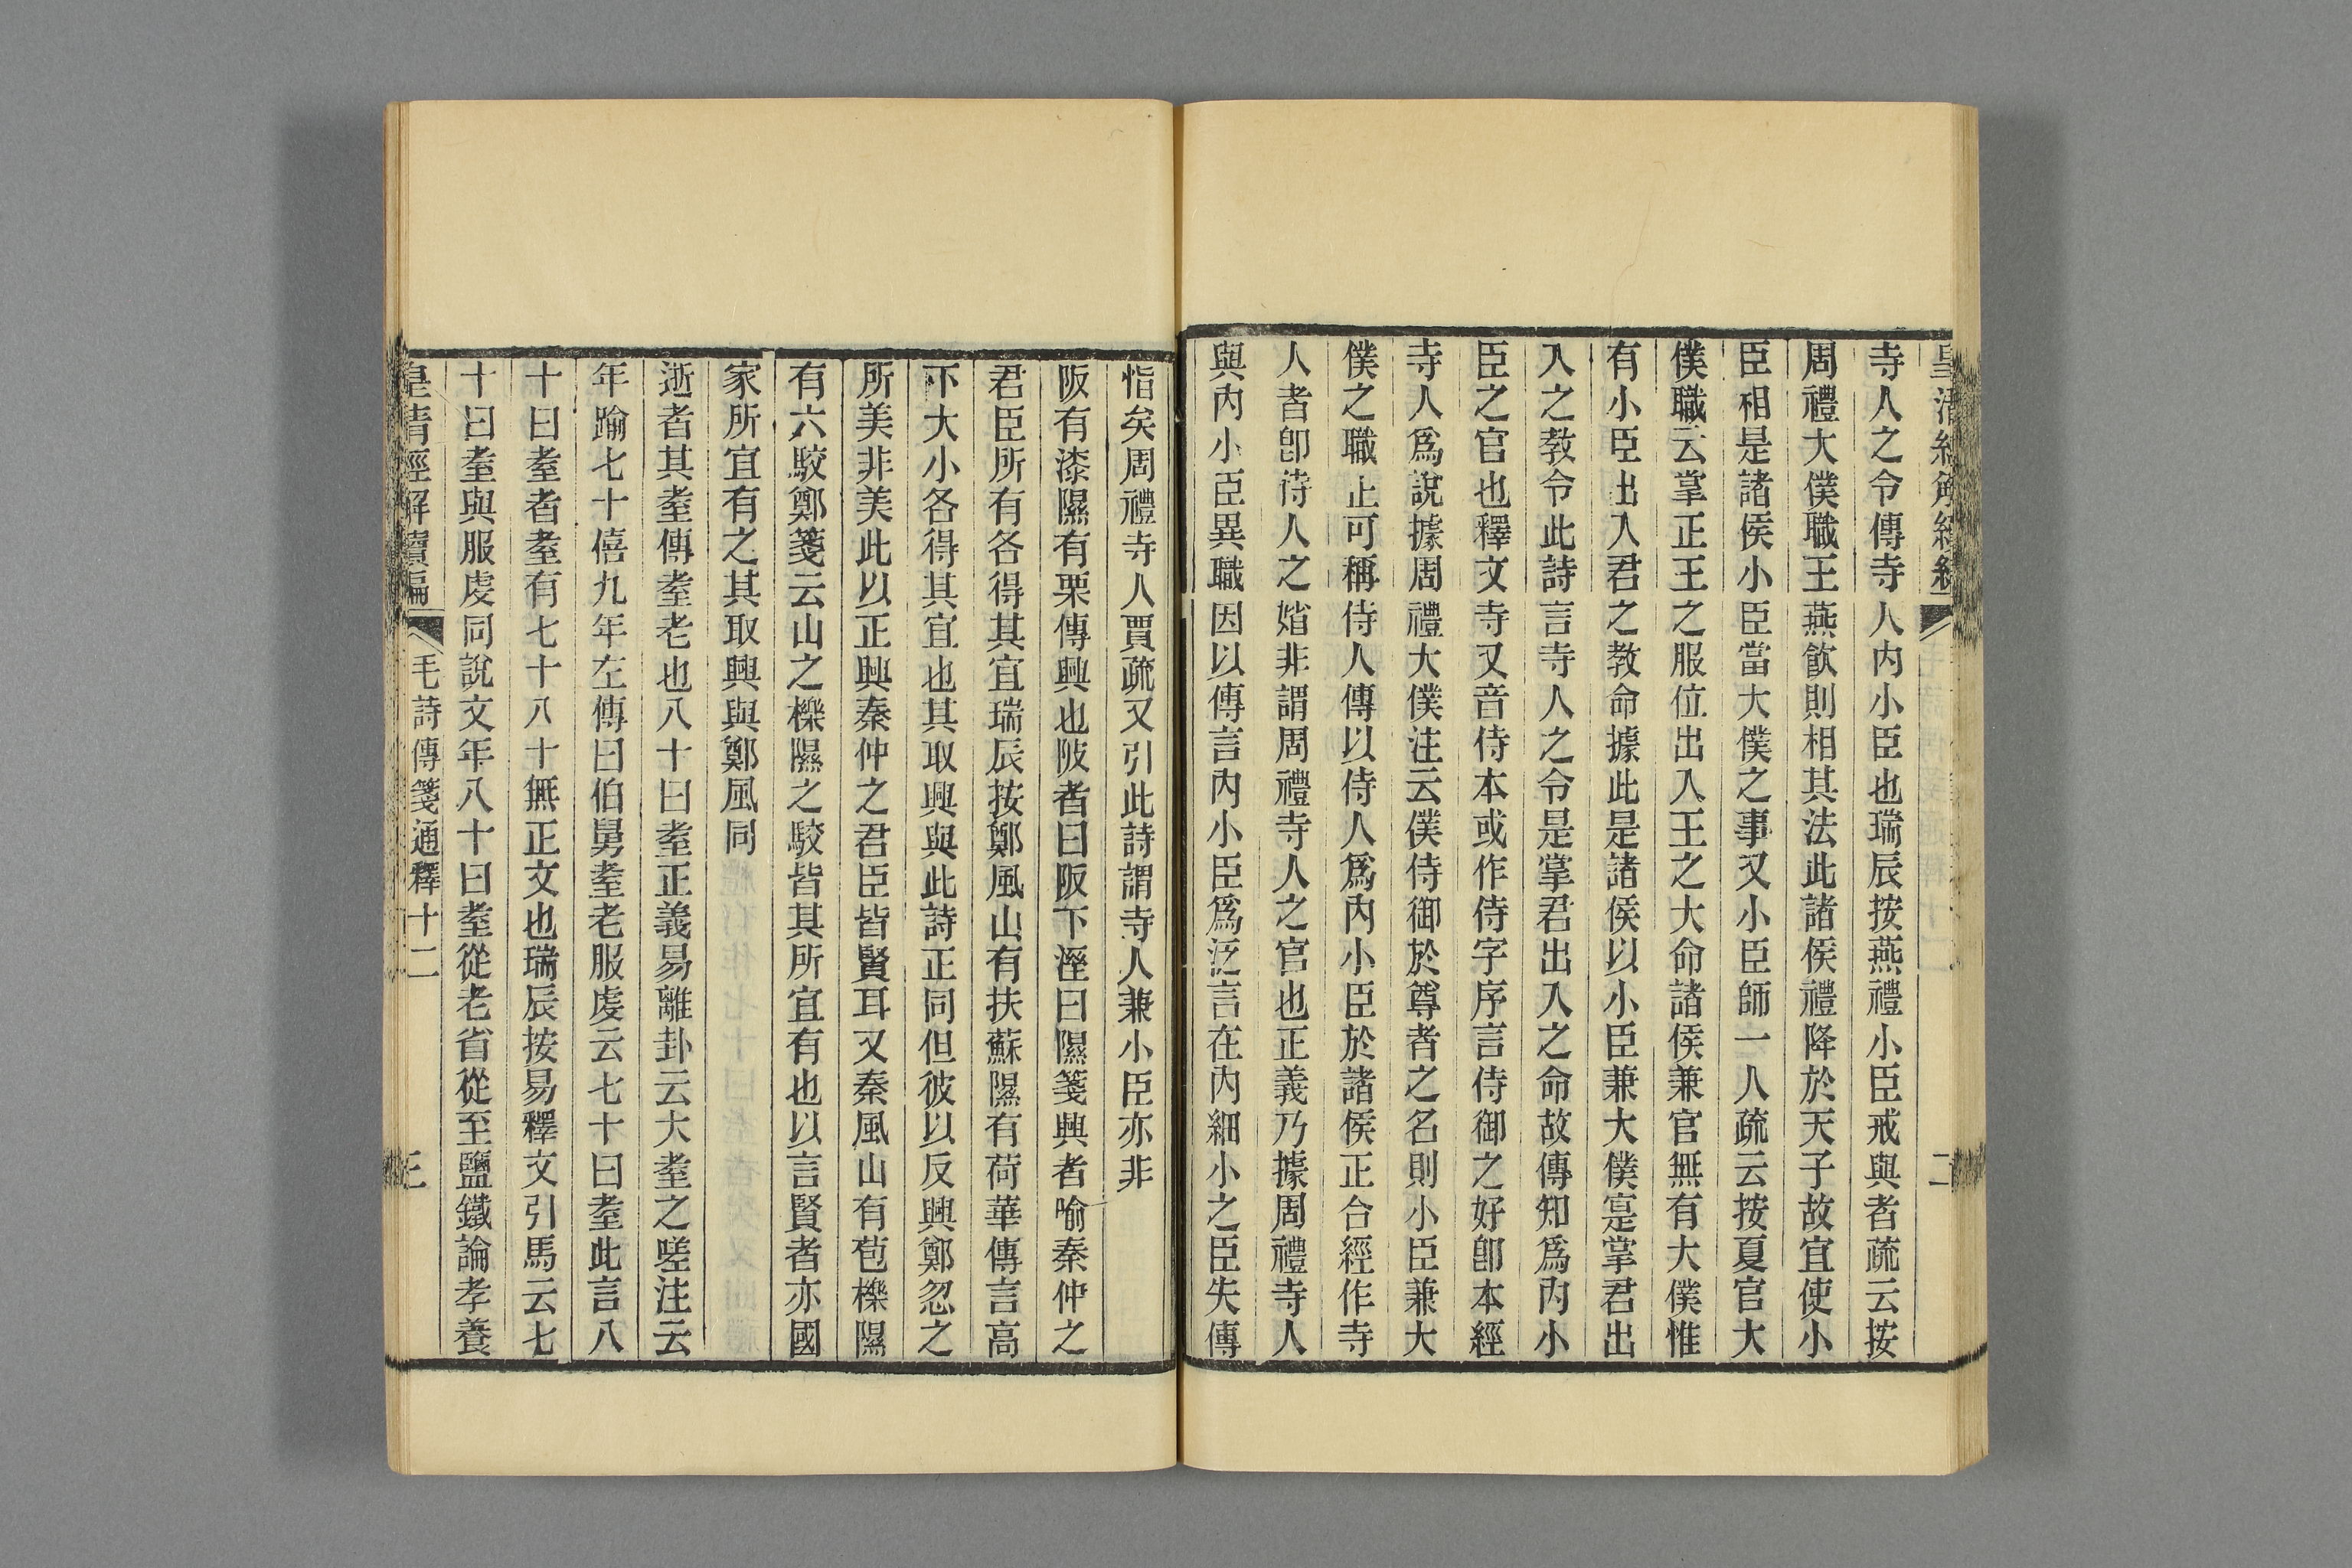 皇清經解續編
二
寺人之令傳寺人內小臣也瑞辰按燕禮小臣戒與者疏云按
周禮大僕職王燕飮則相其法此諸侯禮降於天子故宜使小
臣相是諸侯小臣當大僕之事又小臣師一人疏云按夏官大
僕職云掌正王之服位出入王之大命諸侯兼官無有大僕惟
有小臣出入君之教命據此是諸侯以小臣兼大僕寔掌君出
入之教令此詩言寺人之令是掌君出入之命故傳知爲內小
臣之官也釋文寺又音侍本或作侍字序言侍御之好卽本經
寺人爲說據周禮大僕注云僕侍御於尊者之名則小臣兼大
僕之職止可稱侍人傳以侍人爲內小臣於諸侯正合經作寺
人者卽待人之媘非謂周禮寺人之官也正義乃據周禮寺人
與內小臣異職因以傳言內小臣爲泛言在內細小之臣失傳
恉矣周禮寺人賈疏又引此詩謂寺人兼小臣亦非
阪有漆隰有栗傳興也陂者曰阪下溼曰隰箋興者喻秦仲之
君臣所有各得其宜瑞辰按鄭風山有扶蘇隰有荷華傳言高
下大小各得其宜也其取興與此詩正同但彼以反興鄭忽之
所美非美此以正興秦仲之君臣皆賢耳又秦風山有苞櫟隰
有六駮鄭箋云山之櫟隰之駮皆其所宜有也以言賢者亦國
家所宜有之其取興與鄭風同
逝者其耋傳耋老也八十曰耋正義易離卦云大耋之嗟注云
年踰七十僖九年左傳曰伯舅耋老服虔云七十曰耋此言八
十曰耋者耋有七十八十無正文也瑞辰按易釋文引馬云七
十曰耋與服虔同說文年八十曰耋從老省從至鹽鐵論孝養
皇清經解續編
毛詩傳箋通釋十二
三